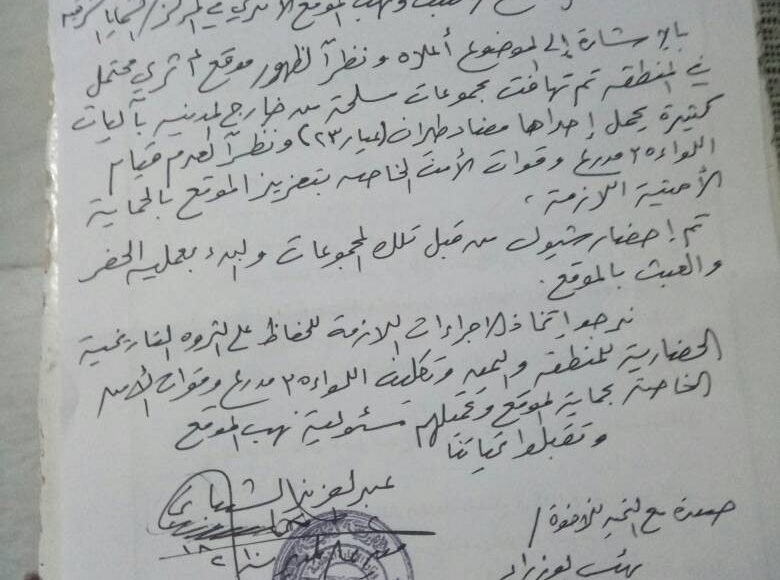 ونهب الموقع الأثري في المركز
بالإشارة إلى الموضوع أعلاه ونظراً لظهور موقع أثري محتمل
في المنطقة تم تهافت مجموعات مسلحة من خارج المدينه بآليات
كثيرة يحمل إحداها مضاد طيران (عيار ٢٣) ونظراً لعدم قيام
اللواء ٣٥ مدرع وقوات الأمن الخاصه بتعزيز الموقع بالحماية
الأمنية اللازمة ،
تم إحضار شيول من قبل تلك المجموعات والبدء بعمليه الحفر
والعبث بالموقع .
نرجو اتخاذ الاجراءات اللازمة للحفاظ على الثروه التاريخية
الحضارية للمنطقه واليمن وتكليف اللواء ٣٥ مدرع وقوات الأمن
الخاصة بحماية الموقع وتحميلهم مسئولية نهب الموقع
وتقبلوا تحياتنا
عبدالعزيز الشيباني
صورة مع التحيه للاخوة /